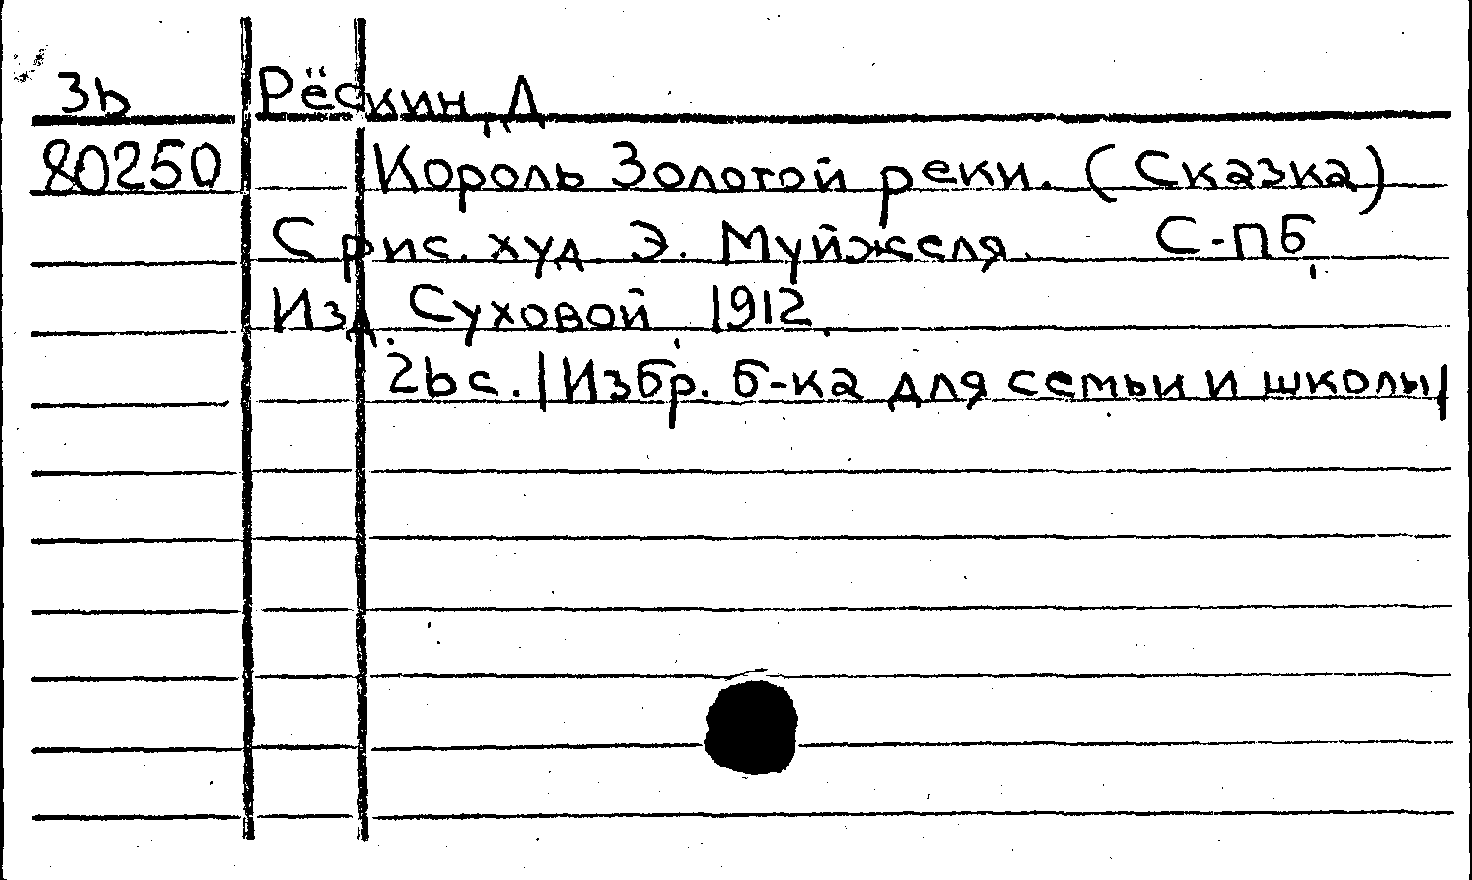 3b Рёскин, Д
80250 Король Золотой реки. (Сказка)
С рис. худ. Э. Муйжеля. С-ПБ,
Изд. Суховой, 1912.
2b с. |Избр. б-ка для семьи и школы|